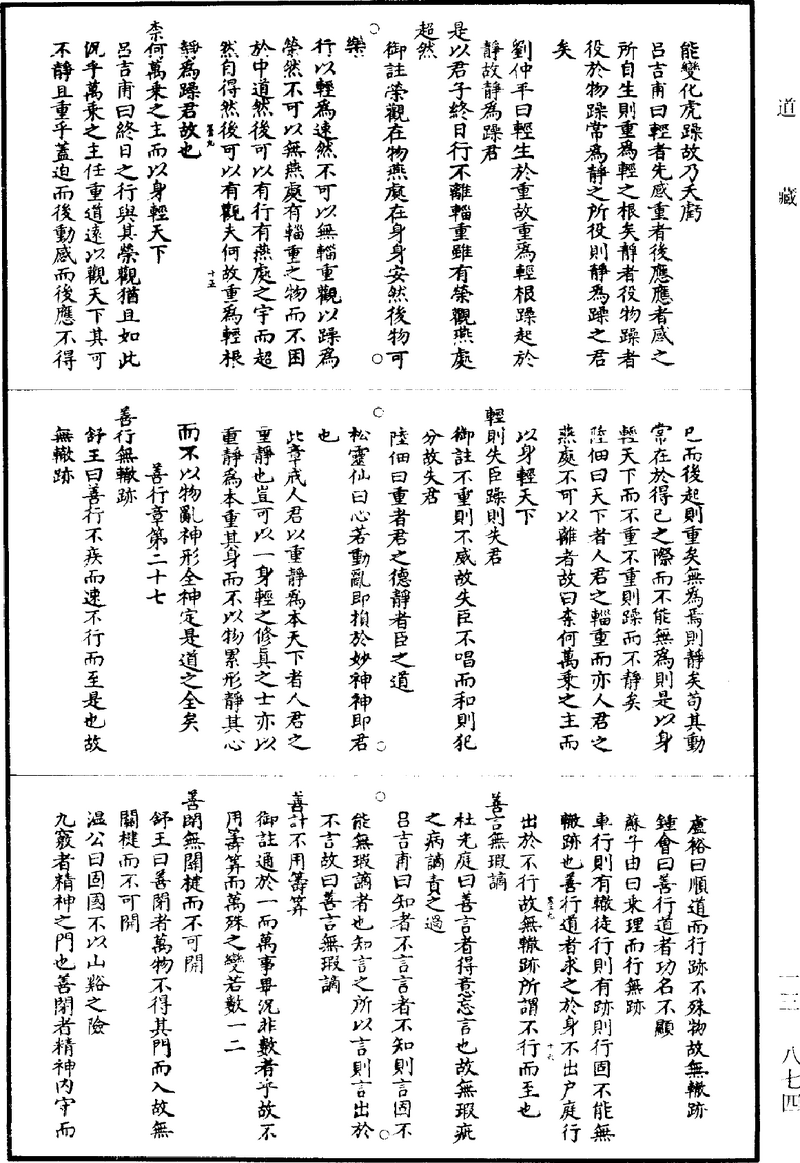 道藏
能變化虎躁故乃夭虧
呂吉甫曰輕者先感重者後應應者感之
所自生則重為輕之根矣靜者役物躁者
役於物躁常為靜之所役則靜為躁之君
矣
劉仲平曰輕生於重故重為輕根躁起於
靜故靜為躁君
是以君子終日行不離輜重雖有榮觀燕處
超然
御註榮觀在物燕處在身身安然後物可
樂
行以輕為速然不可以無輜重觀以躁為
榮然不可以無燕處有輜重之物而不困
於中道然後可以有行有燕處之宇而超
然自得然後可以有觀夫何故重為輕根
靜為躁君故也
柰何萬乘之主而以身輕天下
呂吉甫曰終日之行與其榮觀猶且如此
況乎萬乘之主任重道遠以觀天下其可
不靜且重乎蓋迫而後動感而後應不得
已而後起則重矣無為焉則靜矣苟其動
常在於得已之際而不能無為則是以身
輕天下而不重不重則躁而不靜矣
陸佃曰天下者人君之輜重而亦人君之
燕處不可以離者故曰柰何萬乘之主而
以身輕天下
輕則失臣躁則失君
御註不重則不威故失臣不唱而和則犯
分故失君
陸佃曰重者君之德靜者臣之道
松靈仙曰心若動亂即損於妙神神即君
也
此章戒人君以重靜為本天下者人君之
重靜也豈可以一身輕之修真之士亦以
重靜為本重其身而不以物累形靜其心
而不以物亂神形全神定是道之全矣
善行章第二十七
善行無轍跡
舒王曰善行不疾而速不行而至是也故
無轍跡
盧裕曰順道而行跡不殊物故無轍跡
鍾會曰善行道者功名不顯
蘇子由曰乘理而行無跡
車行則有轍徒行則有跡則行固不能無
轍跡也善行道者求之於身不出戶庭行
出於不行故無轍跡所謂不行而至也
善言無瑕讁
杜光庭曰善言者得意忘言也故無瑕疵
之病讁責之過
呂吉甫曰知者不言言者不知則言固不
能無瑕讁者也知言之所以言則言出於
不言故曰善言無瑕讁
善計不用籌筭
御註通於一而萬事畢況非數者乎故不
用籌筭而萬殊之變若數一二
善閉無關楗而不可開
舒王曰善閉者萬物不得其門而入故無
關楗而不可開
溫公曰固國不以山谿之險
九竅者精神之門也善閉者精神內守而
一三 八七四